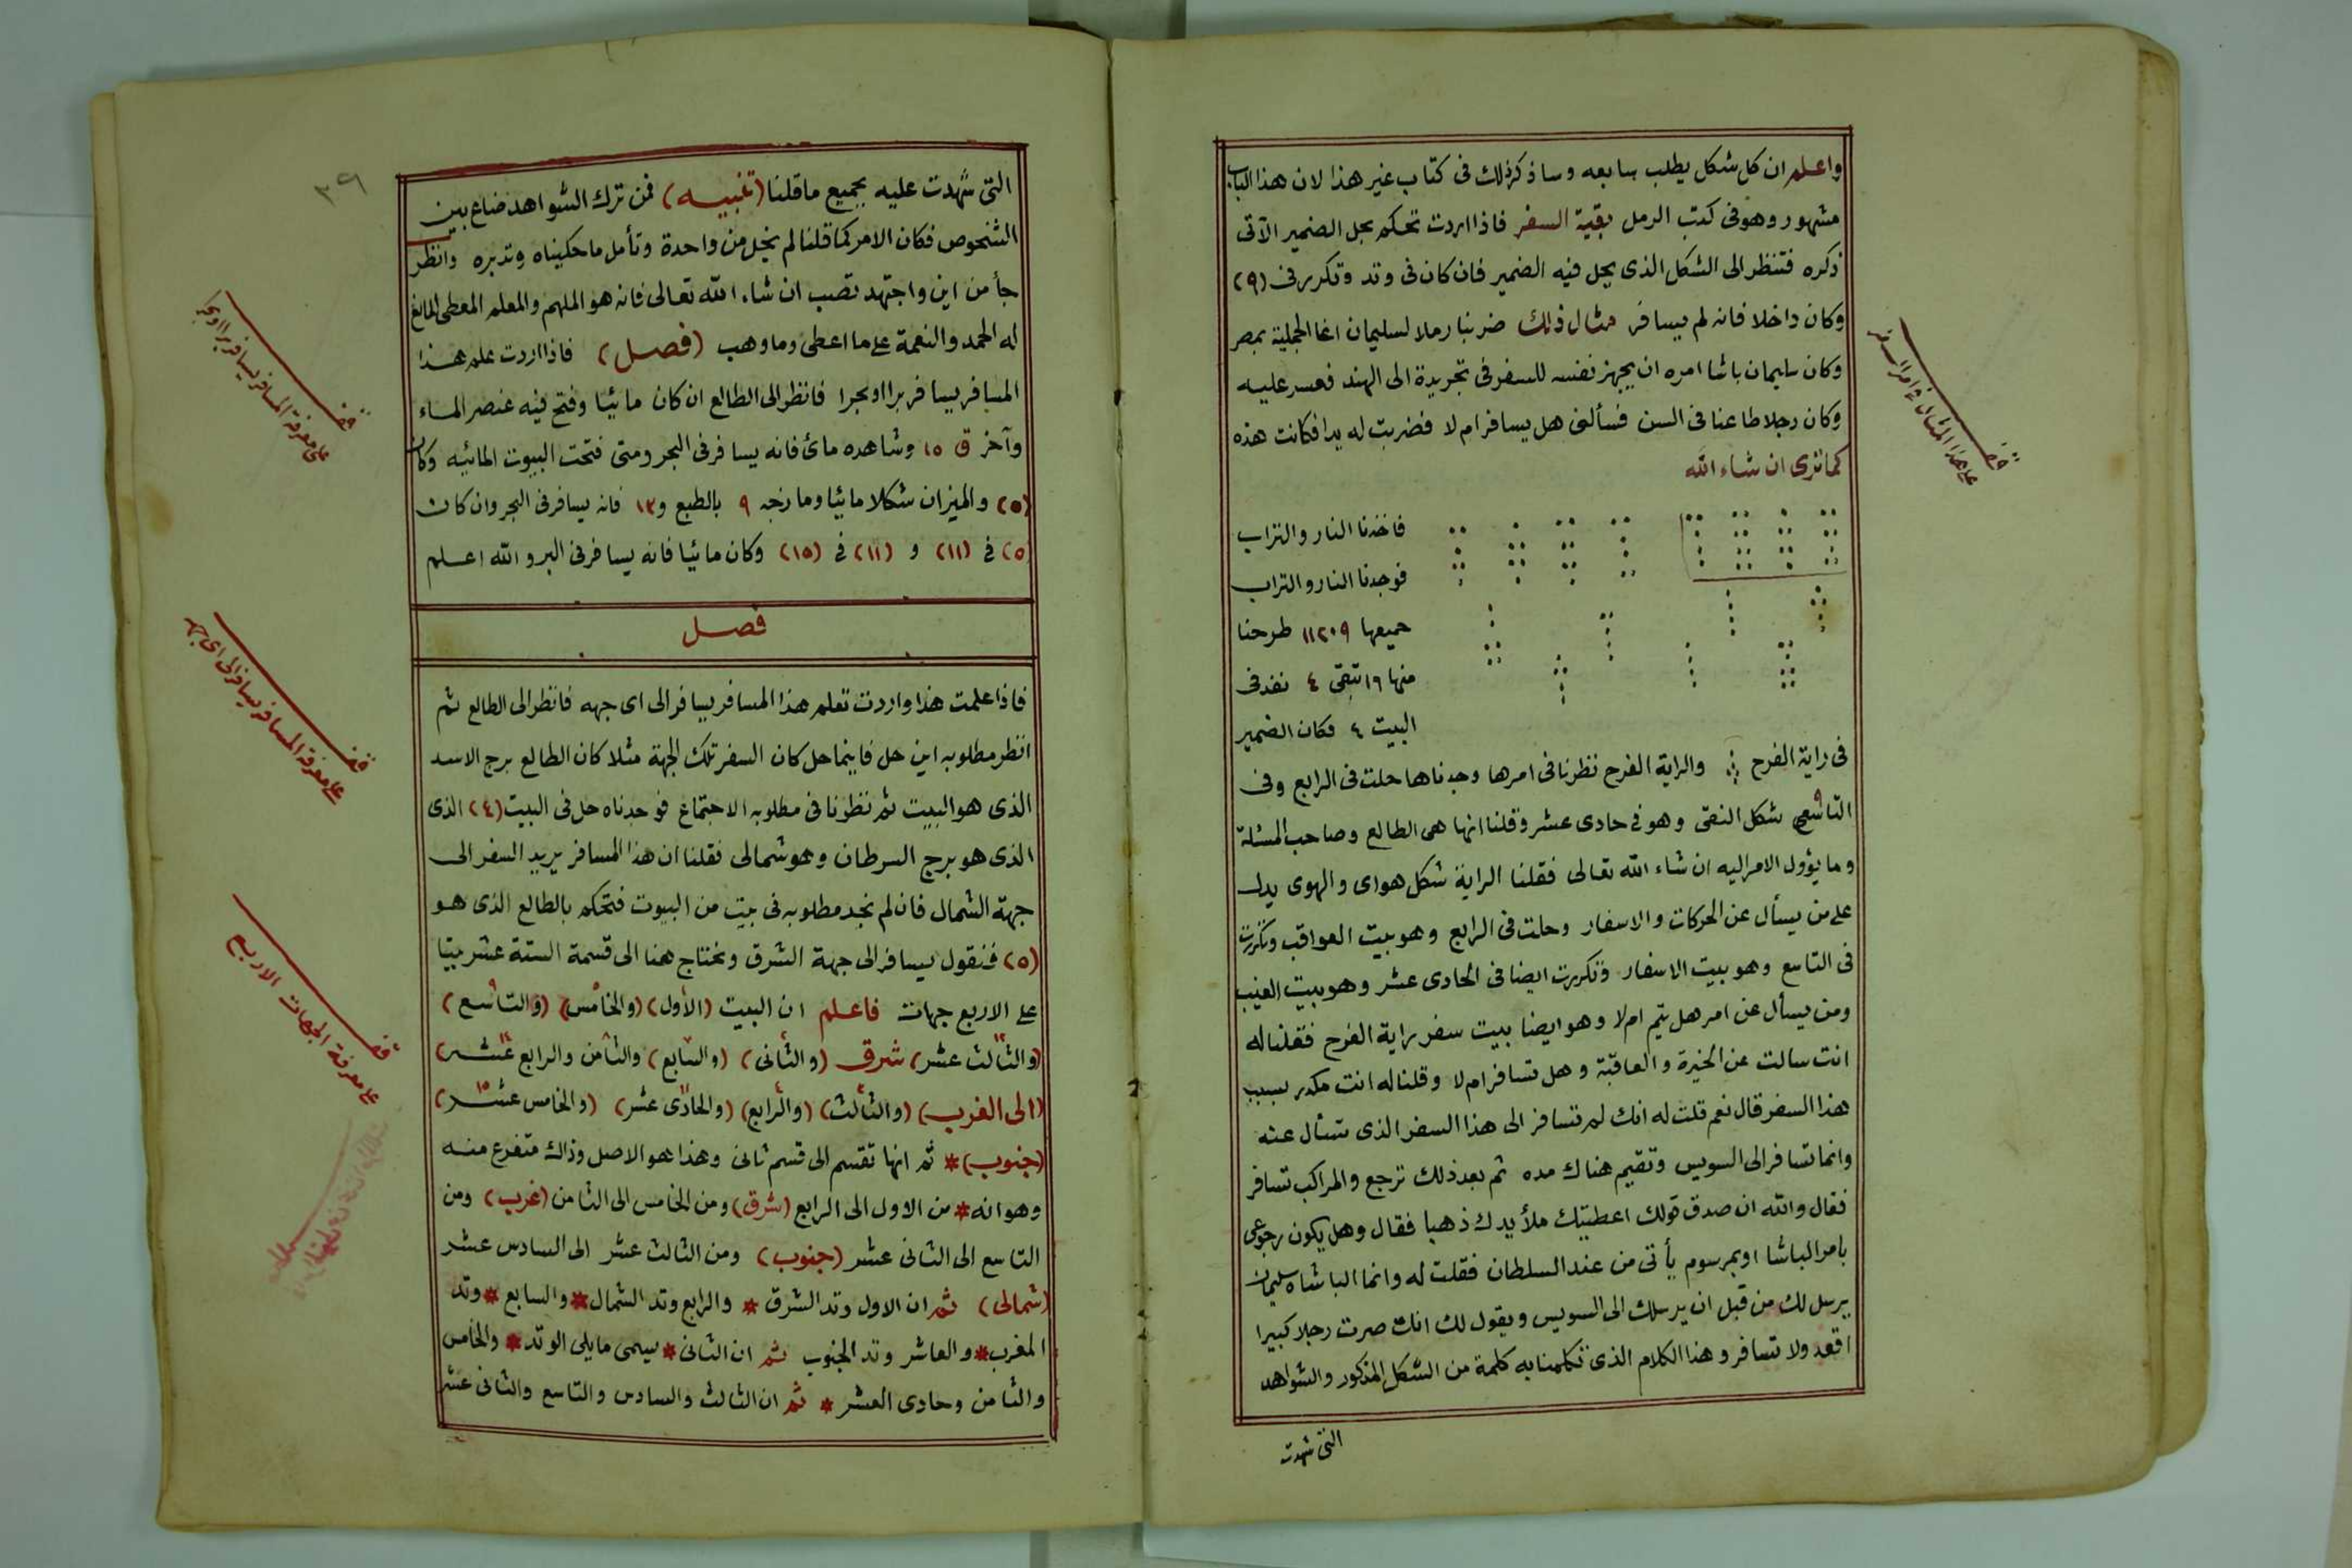 واعلم ان كل شكل يطلب سابعه وساذكر ذلك فى كتاب غير هذا لان هذا الباب
مشهور وهو فى كتب الرمل بقية السفر فاذا اردت تحكم بحل الضمير الآتى
ذكره فتنظر الى الشكل الذى يحل فيه الضمير فان كان فى وتد وتكرر فى (٩)
وكان داخلا فانه لم يسافر مثال ذلك ضربنا رملا لسليمان اغا الجملية بمصر
وكان سليمان باشا امره ان يجهز نفسه للسفر فى تجريدة الى الهند فعسر عليه
وكان رجلا طاعنا فى السن فسألنى هل يسافر ام لا فضربت له يدا فكانت هذه
كما ترى ان شاء الله
فاخذنا النار والتراب
فوجدنا النار والتراب
جميعها ١١٢٠٩ طرحنا
منها ١٦ تبقى ٤ نفد فى
البيت ٤ فكان الضمير
فى راية الفرح والراية الفرح نظرنا فى امرها وجدناها حلت فى الرابع وفى
التاسع شكل النقى وهو فى حادى عشر وقلنا انها هى الطالع وصاحب المسئلة
وما يؤول الامر اليه ان شاء الله تعالى فقلنا الراية شكل هواى والهوى يدل
على من يسأل عن الحركات والاسفار وحلت فى الرابع وهو بيت العواقب وتكررت
فى التاسع وهو بيت الاسفار وتكررت ايضا فى الحادى عشر وهو بيت الغيب
ومن يسأل عن امر هل يتم ام لا وهو ايضا بيت سفر راية الفرح فقلنا له
انت سالت عن الخيرة والعاقبة وهل تسافر ام لا وقلنا له انت مكدر بسبب
هذا السفر قال نعم قلت له انك لم تسافر الى هذا السفر الذى تسأل عنه
وانما تسافر الى السويس وتقيم هناك مده ثم بعد ذلك ترجع والمراكب تسافر
فقال والله ان صدق قولك اعطيتك ملأ يدك ذهبا فقال وهل يكون رجوعى
بامر الباشا او بمرسوم يأتى من عند السلطان فقلت له وانما الباشاه سليمان
يرسل لك من قبل ان يرسلك الى السويس ويقول لك انك صرت رجلا كبيرا
اقعد ولا تسافر وهذا الكلام الذى تكلمنا به كلمة من الشكل المذكور والشواهد
التى شهدت
على هذا المثال فى امر السفر
٣٩
التى شهدت عليه بجميع ما قلنا (تنبيه) فمن ترك الشواهد ضاع بين
الشخوص فكان الامر كما قلنا لم يخل من واحدة وتأمل ما حكيناه وتدبره وانظر
جأ من اين واجتهد تصب ان شاء الله تعالى فانه هو الملهم والمعلم المعطى المانع
له الحمد والنعمة على ما اعطى وما وهب (فصل) فاذا اردت علم هذا
المسافر يسافر برا او بحرا فانظر الى الطالع ان كان مائيا وفتح فيه عنصر الماء
وآخر ق ١٥ وشاهده مائى فانه يسافر فى البحر ومتى فتحت البيوت المائيه وكان
(٥) والميزان شكلا مائيا ومازجه ٩ بالطبع و١٢ فانه يسافر فى البحر وان كان
(٥) فى (١١) و (١١) فى (١٥) وكان مائيا فانه يسافر فى البر والله اعلم
فصل
فاذا علمت هذا واردت تعلم هذا المسافر يسافر الى اى جهه فانظر الى الطالع ثم
انظر مطلوبه اين حل فاينما حل كان السفر تلك الجهة مثلا كان الطالع برج الاسد
الذى هو البيت ثم نظرنا فى مطلوبه الاجتماع فوجدناه حل فى البيت (٤) الذى
الذى هو برج السرطان وهو شمالى فقلنا ان هذا المسافر يريد السفر الى
جهة الشمال فان لم نجد مطلوبه فى بيت من البيوت فتحكم بالطالع الذى هو
(٥) فنقول يسافر الى جهة الشرق ونحتاج هنا الى قسمة الستة عشر بيتا
على الاربع جهات فاعلم ان البيت (الأول) (والخامس) (والتاسع)
(والثالث عشر) شرق (والثانى) (والسابع) والثامن والرابع عشر)
(الى الغرب) (والثالث) (والرابع) (والحادى عشر) (والخامس عشر)
(جنوب) * ثم انها تقسم الى قسم ثانى وهذا هو الاصل وذاك متفرع منه
وهو انه * من الاول الى الرابع (شرق) ومن الخامس الى الثامن (غرب) ومن
التاسع الى الثانى عشر (جنوب) ومن الثالث عشر الى السادس عشر
(شمالى) ثم ان الاول وتد الشرق * والرابع وتد الشمال * والسابع * وتد
المغرب * والعاشر وتد الجنوب ثم ان الثانى * يسمى مايلى الوتد * والخامس
والثامن وحادى العشر * ثم ان الثالث والسادس والتاسع والثانى عشر
على معرفة المسافر يسافر برا او بحرا
على معرفة المسافر يسافر الى اى جهه
على معرفة الجهات الاربع